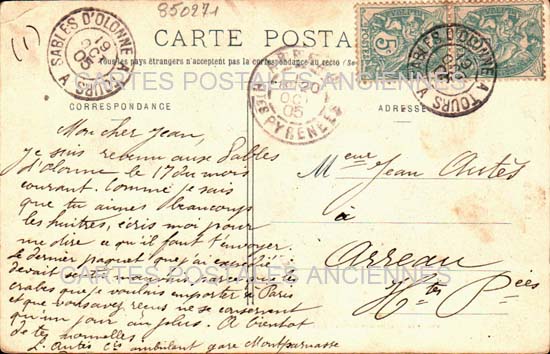 850271
(1)
CARTE POSTALE
Tous les pays étrangers n'acceptent pas la correspondance au recto
SABLES D'OLONNE A TOURS
19
OCT
05
ARREAU
20
OCT
05
Htes PYRÉNÉES
SABLES D'OLONNE A TOURS
19
05
5c
CORRESPONDANCE
ADRESSE
Mon cher Jean,
Je suis revenu aux Sables
d'olonne le 17 du mois
courant. Comme je sais
que tu aimes beaucoup
les huitres, écris moi pour
me dire ce qu'il faut t'envoyer.
Le dernier paquet que j'ai expédié
devait sentir mauvais parce que les
crabes que je voulais emporter à Paris
et que vous avez reçus ne se conservent
qu'un jour au plus. A bientôt
de tes nouvelles.
L. Autès Cis ambulant gare Montparnasse
Mr Jean Autès
à
Arreau
Htes Pées
CARTES POSTALES ANCIENNES
CARTES POSTALES ANCIENNES